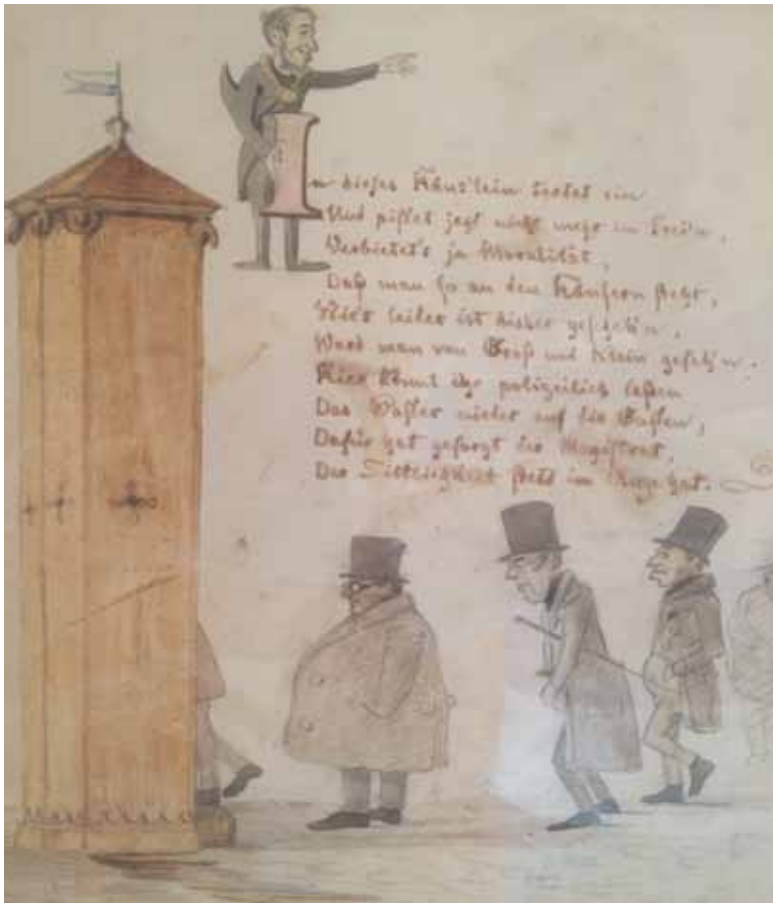 In dieses Häus'lein tretet ein
Und pisset jetzt nicht mehr im Frei'n,
Verbietet's ja Moralität,
Daß man so an den Häusern steht,
leider ist bisher gescheh'n,
Ward man von Groß und Klein geseh'n.
Hier könnt ihr polizeilich lassen
Das Wasser nieder auf die Gassen,
Dafür hat gesorgt der Magistrat,
Der Sittlichkeit stets im Auge hat.